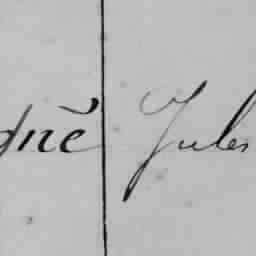 gné Jules